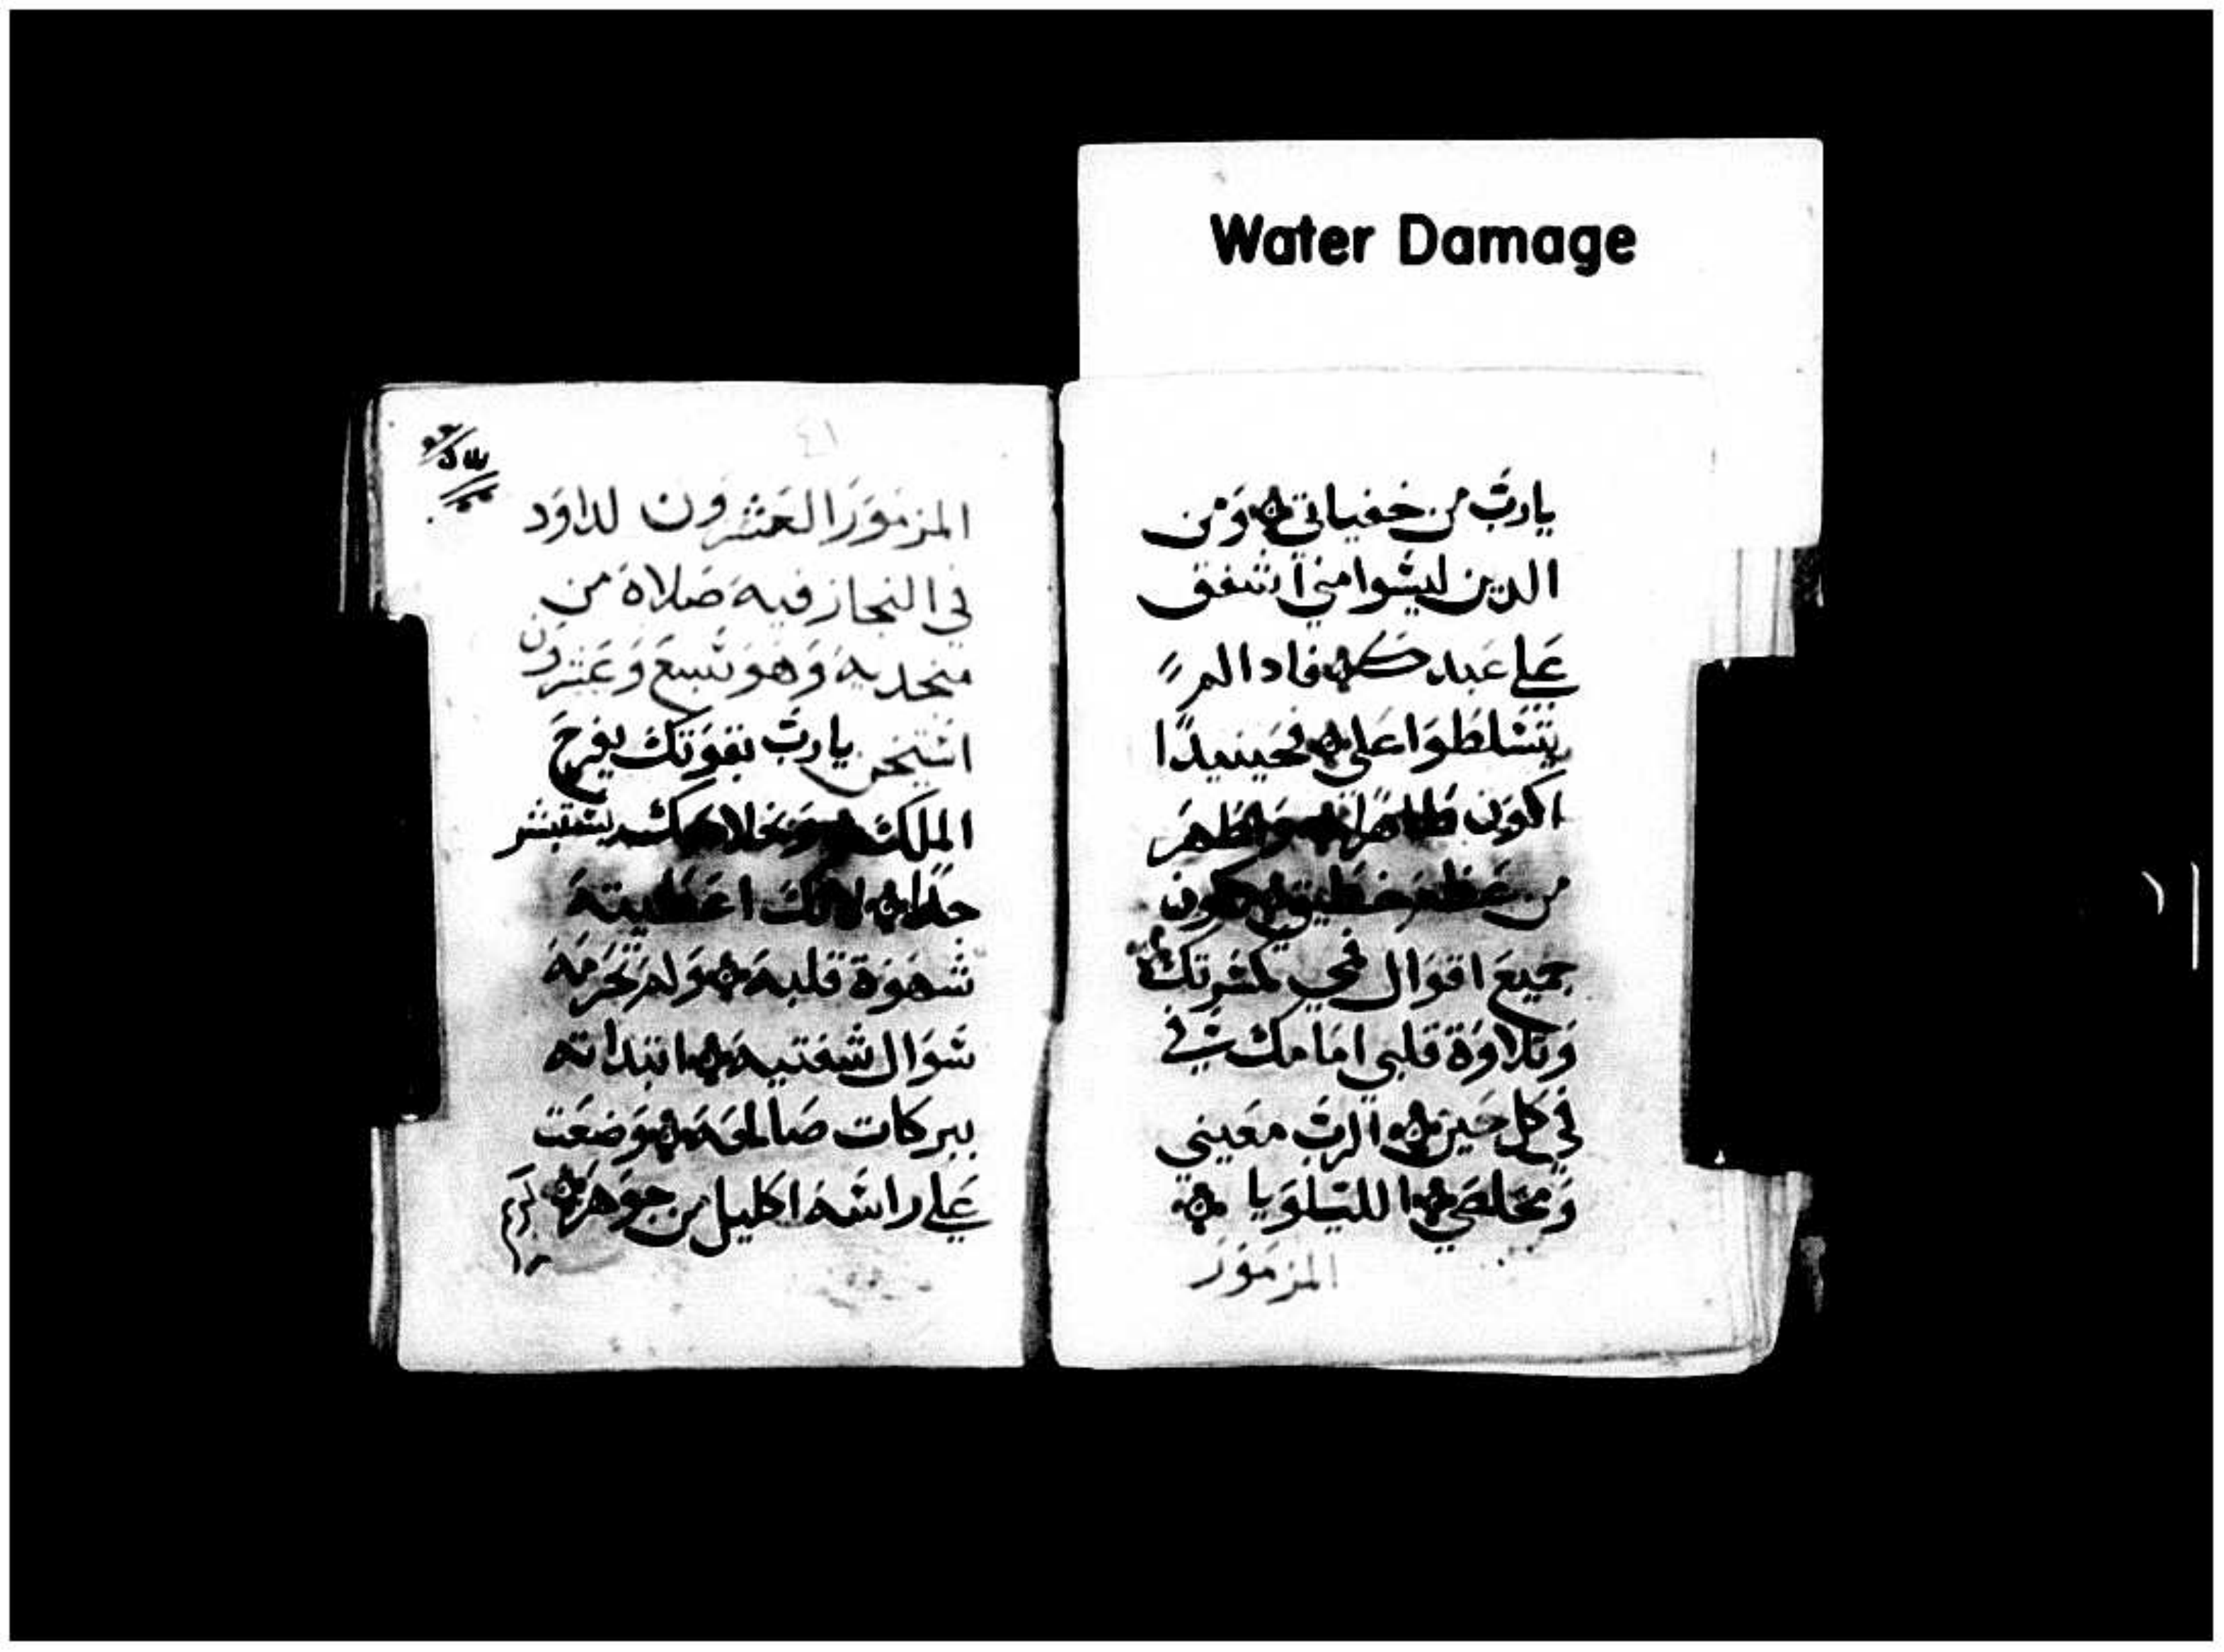 Water Damage
يارب من خفياتي ومن
الدين ليسوا مني اشفق
علي عبدك فادا لم
يتسلطوا علي فحينيدا
اكون طاهرا واطهر
من عظم خطيتي وتكون
جميع اقوال فمي كمسرتك
وتلاوة قلبي امامك
في كل حين الرب معيني
ومخلصي الليلويا
المزمور
٤١
المزمور العشرون لداود
في النجاز فيه صلاة من
وهو تسع وعشرون
استيخن يارب بقوتك يفرح
الملك وبخلاصك يستبشر
جدا لانك اعطيته
شهوة قلبه ولم تحرمه
سوال شفتيه ابتداته
ببركات صالحة ووضعت
علي راسه اكليل من جوهر